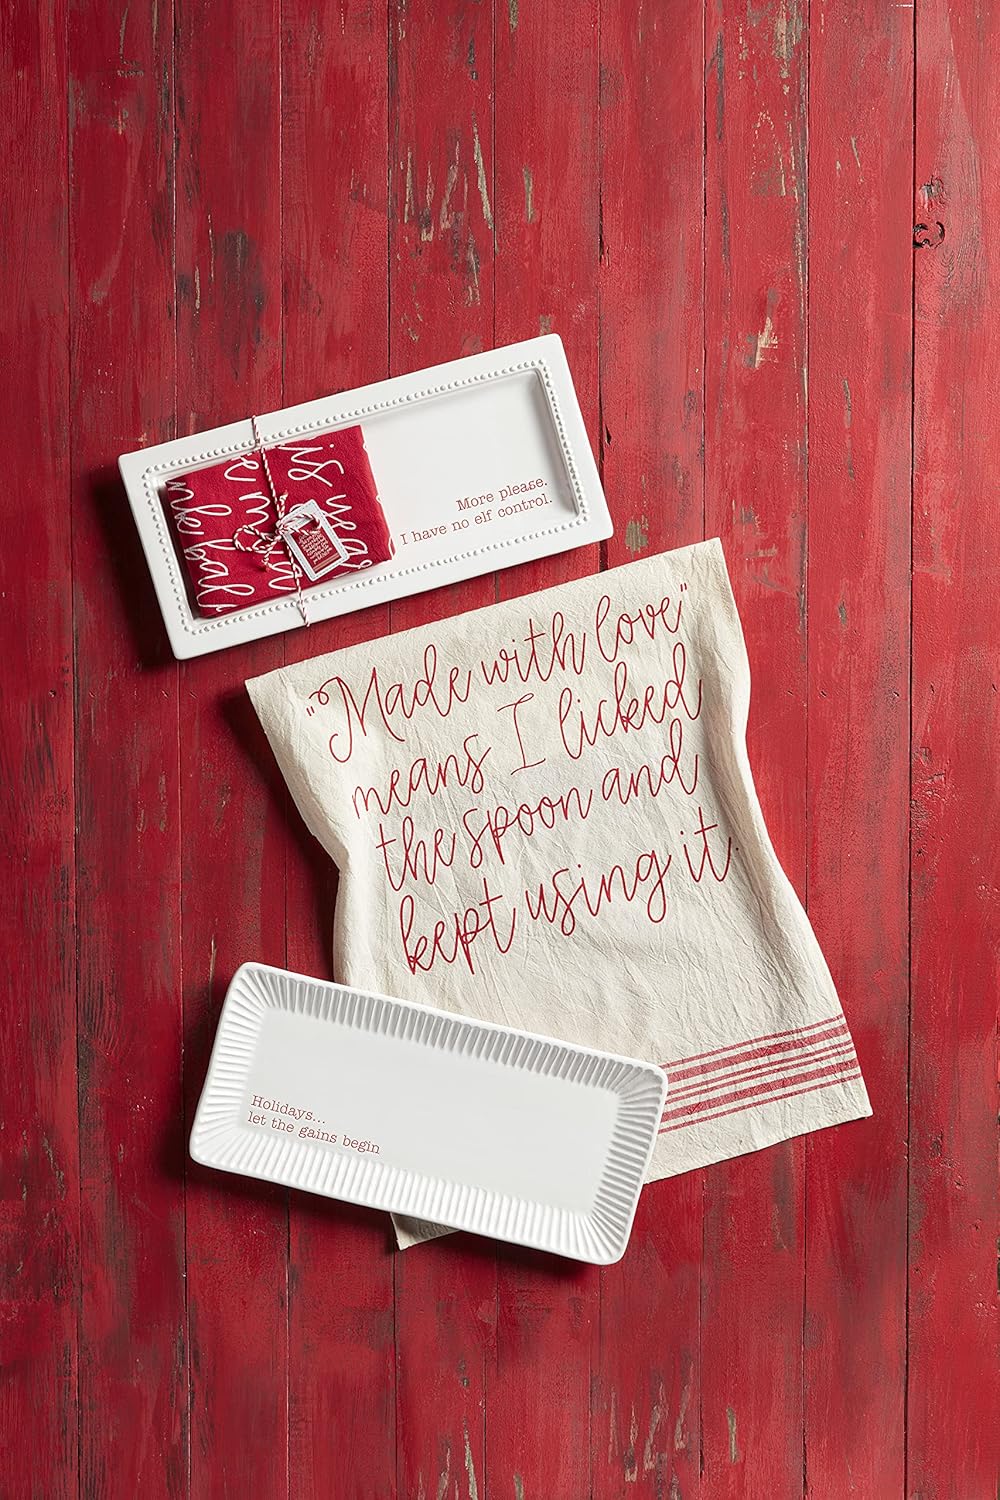 More please.
I have no elf control.
"Made with love"
means I licked
the spoon and
kept using it.
Holidays...
let the gains begin